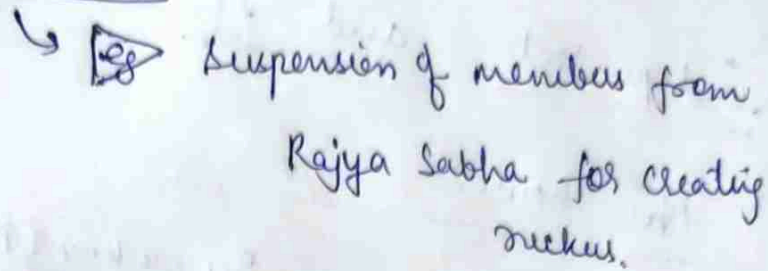 ↳ eg Suspension of members from
Rajya Sabha for creating
ruckus.